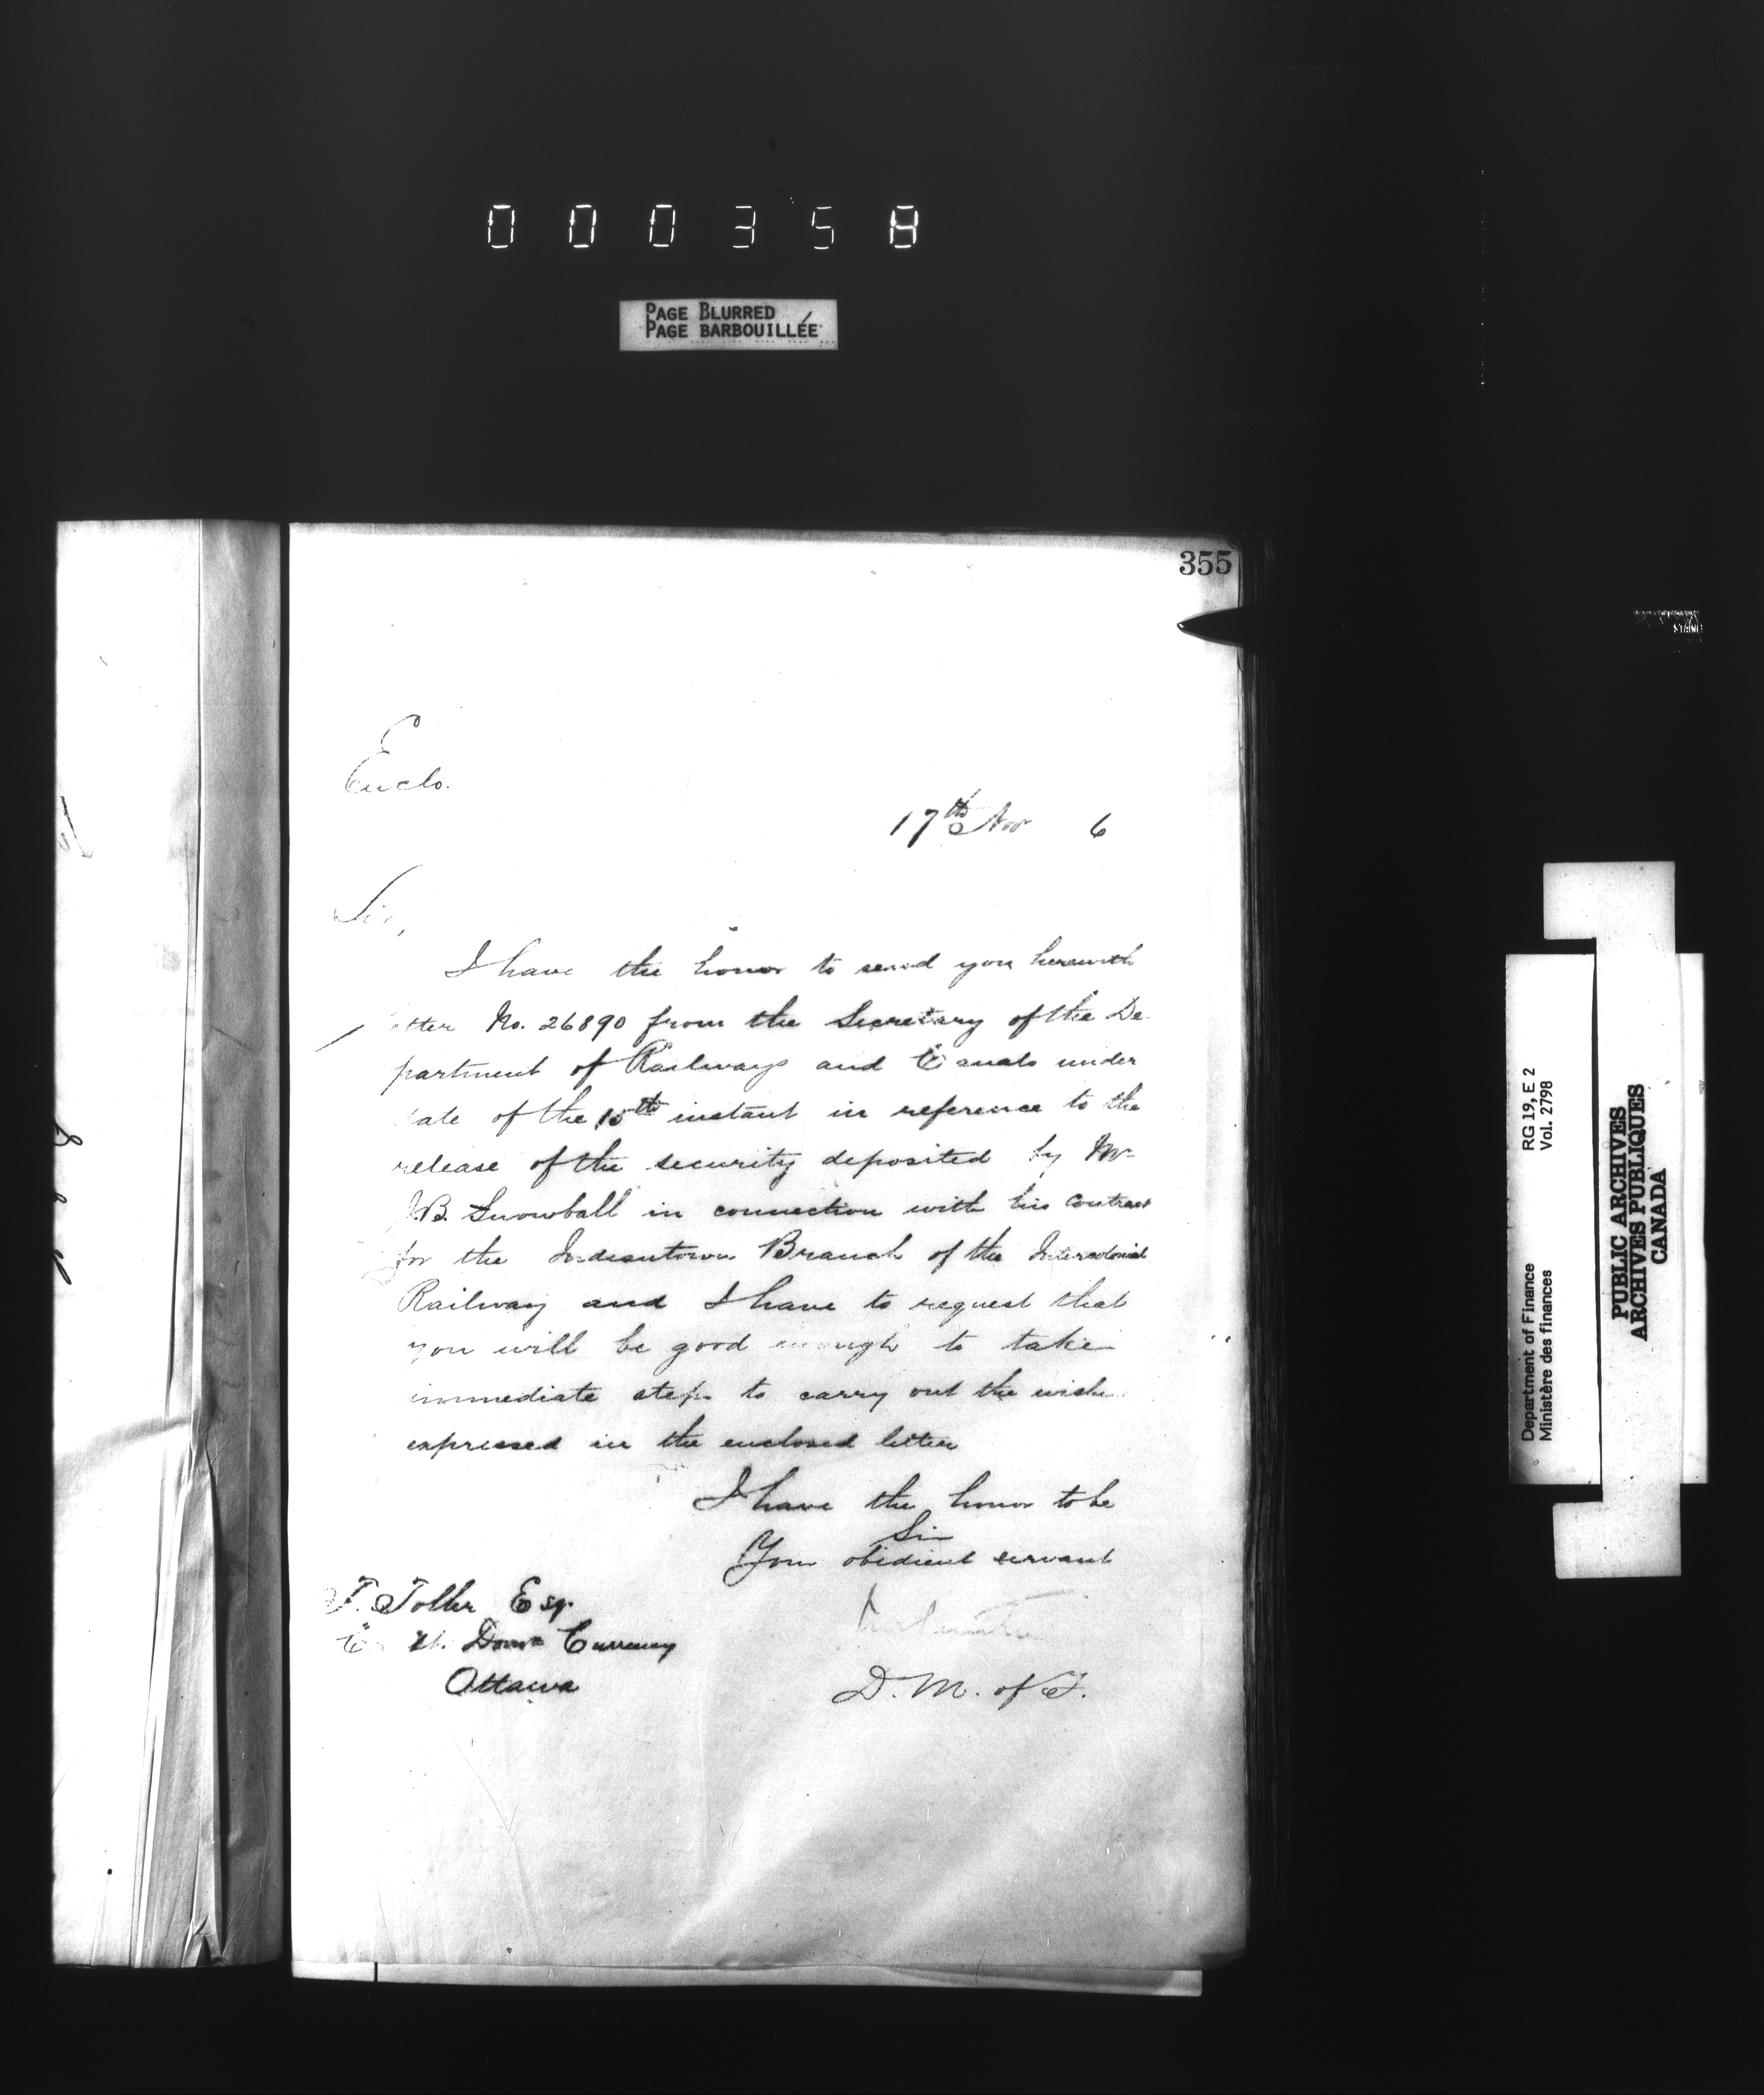 000358
PAGE BLURRED
PAGE BARBOUILLÉE
355
E
Enclo.
17th Nov 6
Sir,
I have the honor to send you herewith
letter No. 26890 from the Secretary of the De-
partment of Railways and Canals under
date of the 15th instant in reference to the
release of the security deposited by Mr
J.B. Snowball in connection with his contract
for the Indiantown Branch of the Intercolonial
Railway and I have to request that
you will be good enough to take
immediate steps to carry out the wish
expressed in the enclosed letter
I have the honor to be
Sir
Your obedient servant
T. Toller Esq.
Domn Currency
Ottawa
D. M. of F.
Department of Finance RG 19, E 2
Ministère des finances Vol. 2798
PUBLIC ARCHIVES
ARCHIVES PUBLIQUES
CANADA